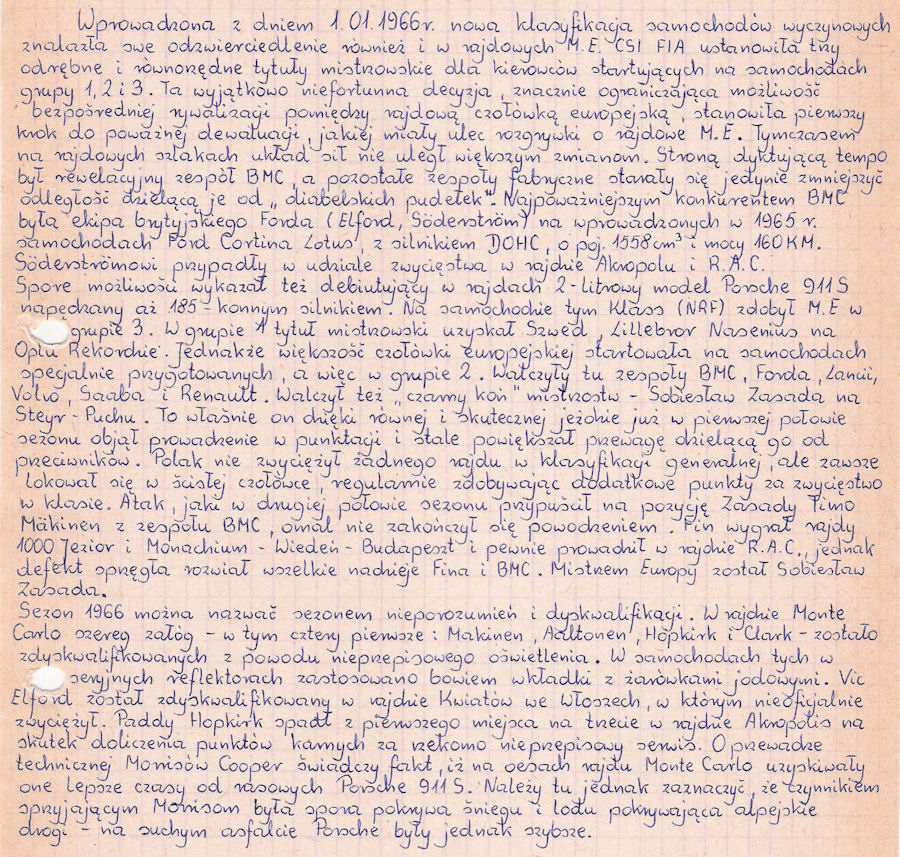 Wprowadzona z dniem 1.01.1966r. nowa klasyfikacja samochodów wyczynowych
znalazła swe odzwierciedlenie również i w rajdowych M.E. CSI FIA ustanowiła trzy
odrębne i równorzędne tytuły mistrzowskie dla kierowców startujących na samochodach
grupy 1,2 i 3. Ta wyjątkowo niefortunna decyzja, znacznie ograniczająca możliwość
bezpośredniej rywalizacji pomiędzy rajdową czołówką europejską, stanowiła pierwszy
krok do poważnej dewaluacji, jakiej miały ulec rozgrywki o rajdowe M.E. Tymczasem
na rajdowych szlakach układ sił nie uległ większym zmianom. Stroną dyktującą tempo
był rewelacyjny zespół BMC, a pozostałe zespoły fabryczne starały się jedynie zmniejszyć
odległość dzielącą je od „diabelskich pudełek". Najpoważniejszym konkurentem BMC
była ekipa brytyjskiego Forda (Elford, Söderström) na wprowadzonych w 1965 r.
samochodach Ford Cortina Lotus, z silnikiem DOHC, o poj. 1558cm³ i mocy 160KM.
Söderströmowi przypadły w udziale zwycięstwa w rajdzie Akropolu i R.A.C.
Spore możliwości wykazał też debiutujący w rajdach 2-litrowy model Porsche 911S
napędzany aż 185-konnym silnikiem. Na samochodzie tym Klass (NRF) zdobył M.E w
grupie 3. W grupie 1 tytuł mistrzowski uzyskał Szwed, Lillebror Nasenius na
Oplu Rekordzie. Jednakże większość czołówki europejskiej startowała na samochodach
specjalnie przygotowanych, a więc w grupie 2. Walczyły tu zespoły BMC, Forda, Lancii,
Volvo, Saaba i Renault. Walczył też „czarny koń" mistrzostw - Sobiesław Zasada na
Steyr-Puchu. To właśnie on dzięki równej i skutecznej jeździe już w pierwszej połowie
sezonu objął prowadzenie w punktacji i stale powiększał przewagę dzielącą go od
przeciwników. Polak nie zwyciężył żadnego rajdu w klasyfikacji generalnej, ale zawsze
lokował się w ścisłej czołówce, regularnie zdobywając dodatkowe punkty za zwycięstwo
w klasie. Atak, jaki w drugiej połowie sezonu przypuścił na pozycję Zasady Timo
Mäkinen z zespołu BMC, omal nie zakończył się powodzeniem. Fin wygrał rajdy
1000 Jezior i Monachium - Wiedeń - Budapeszt i pewnie prowadził w rajdzie R.A.C., jednak
defekt sprzęgła rozwiał wszelkie nadzieje Fina i BMC. Mistrzem Europy został Sobiesław
Zasada.
Sezon 1966 można nazwać sezonem nieporozumień i dyskwalifikacji. W rajdzie Monte
Carlo szereg załóg - w tym cztery pierwsze: Makinen, Aaltonen, Hopkirk i Clark - zostało
zdyskwalifikowanych z powodu nieprzepisowego oświetlenia. W samochodach tych w
seryjnych reflektorach zastosowano bowiem wkładki z żarówkami jodowymi. Vic
Elford został zdyskwalifikowany w rajdzie Kwiatów we Włoszech, w którym nieoficjalnie
zwyciężył. Paddy Hopkirk spadł z pierwszego miejsca na trzecie w rajdzie Akropolis na
skutek doliczenia punktów karnych za rzekomo nieprzepisowy serwis. O przewadze
technicznej Morrisów Cooper świadczy fakt, iż na oesach rajdu Monte Carlo uzyskiwały
one lepsze czasy od rasowych Porsche 911S. Należy tu jednak zaznaczyć, że czynnikiem
sprzyjającym Morrisom była spora pokrywa śniegu i lodu pokrywająca alpejskie
drogi - na suchym asfalcie Porsche były jednak szybsze.